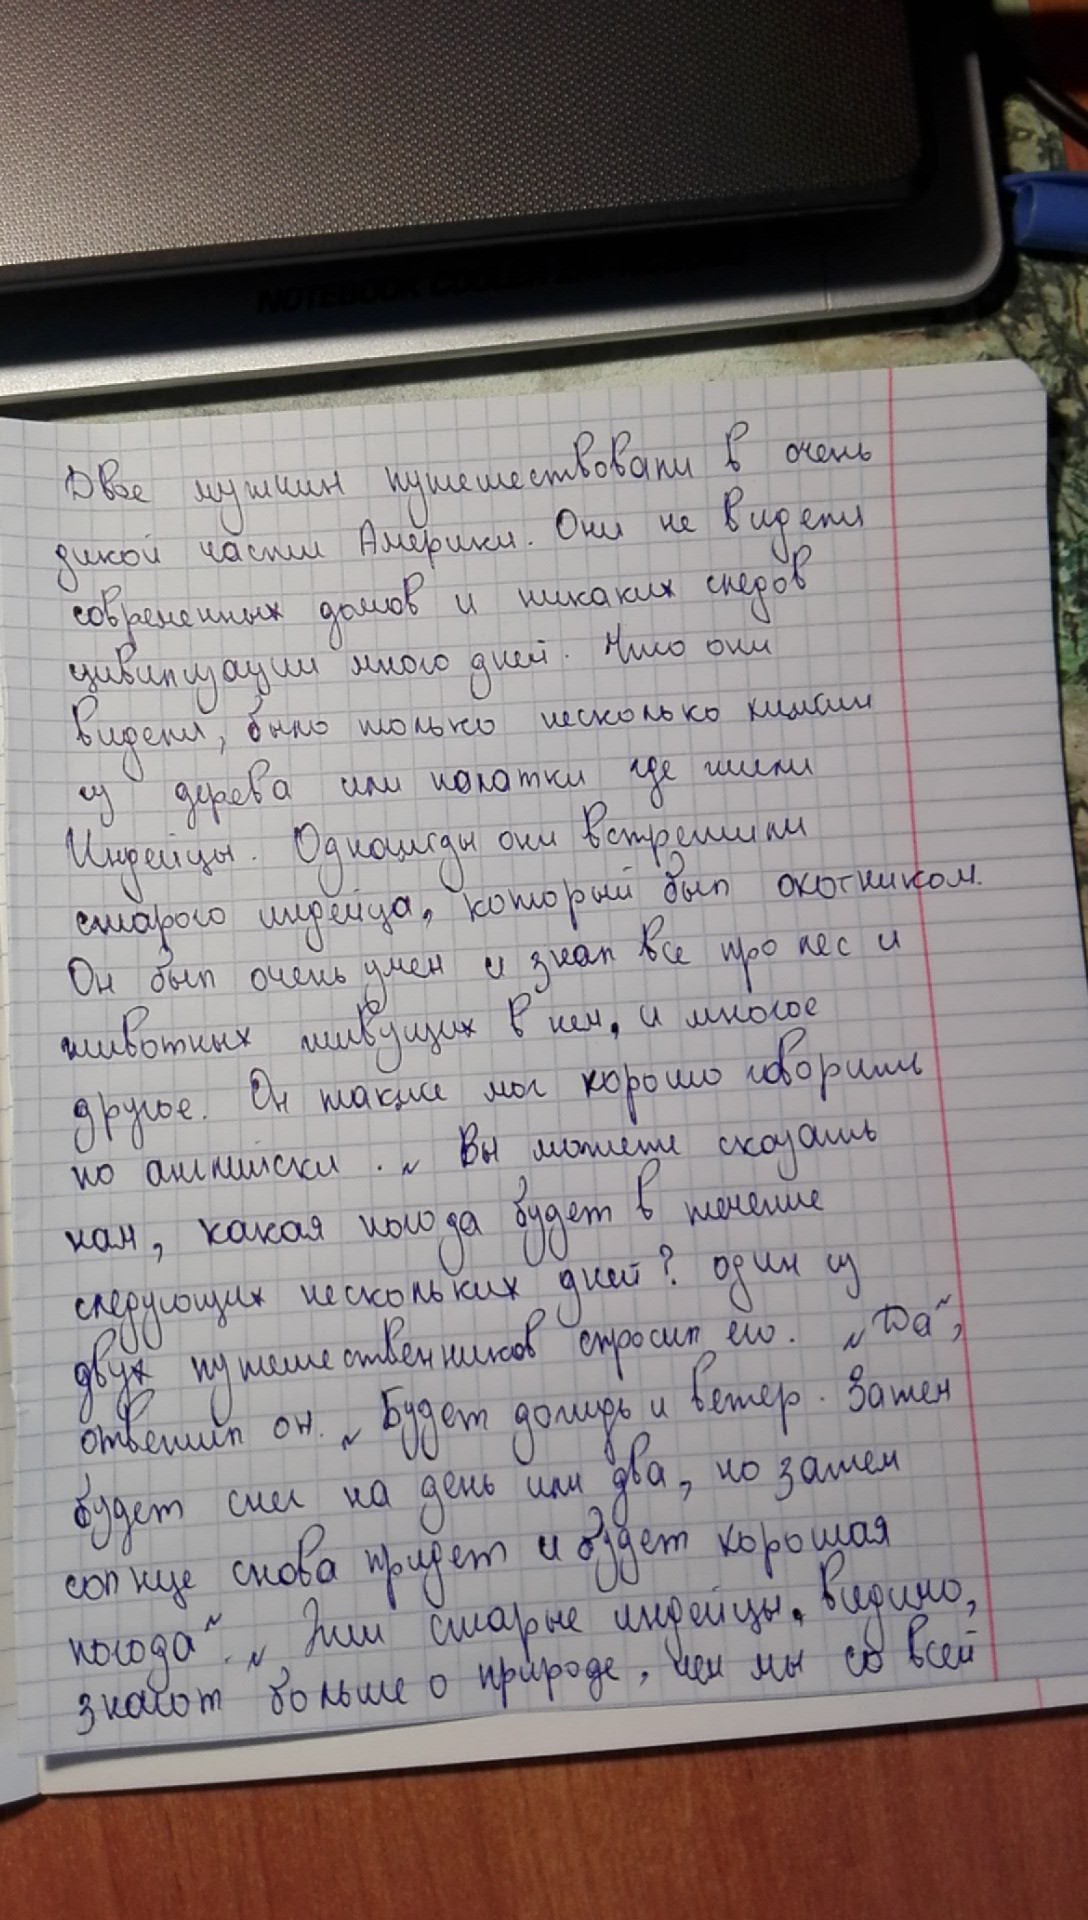 NOTEBOOK COOLER
Двое мужчин путешествовали в очень
дикой части Америки. Они не видели
современных домов и никаких следов
цивилизации много дней. Что они
видели, было только несколько хижин
из дерева или палатки где жили
Индейцы. Однажды они встретили
старого индейца, который был охотником.
Он был очень умен и знал все про лес и
животных живущих в нем, и многое
другое. Он также мог хорошо говорить
по английски. „ Вы можете сказать
нам, какая погода будет в течение
следующих нескольких дней? один из
двух путешественников спросил его. „Да“,
ответил он. „ Будет дождь и ветер. Затем
будет снег на день или два, но затем
солнце снова придет и будет хорошая
погода“. „ Эти старые индейцы, видимо,
знают больше о природе, чем мы со всей